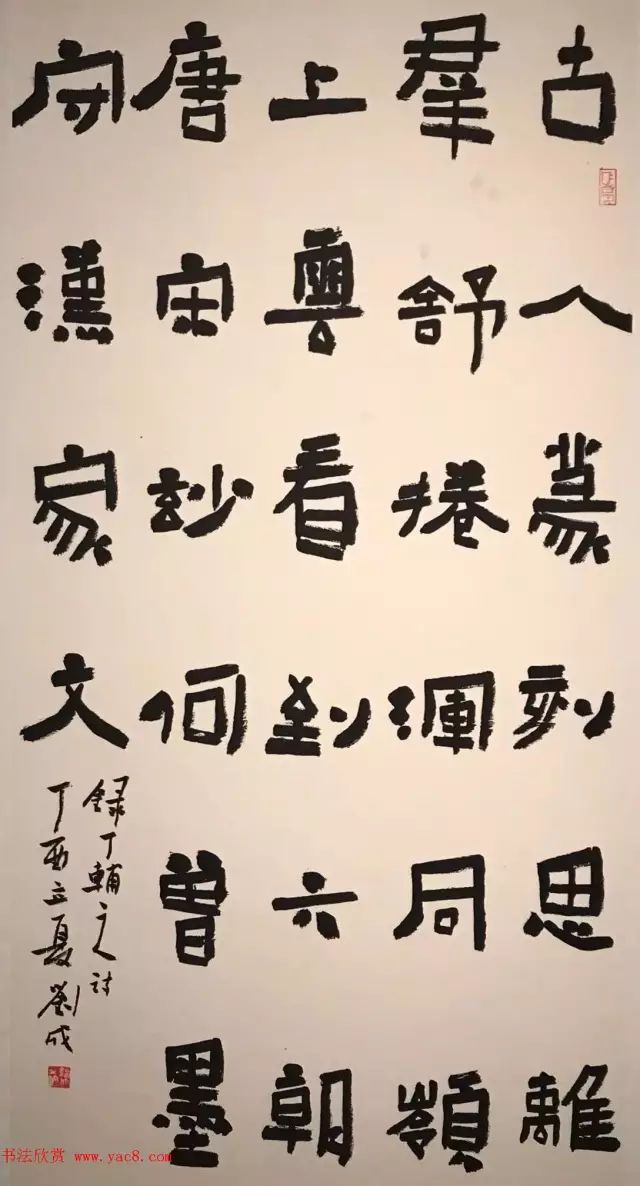 古人篆刻思離
羣舒捲渾同嶺
上雲看到六朝
唐宋玅何曾墨
守漢家文
錄丁輔之人詩
丁酉立夏 劉成
书法欣赏 www.yac8.com